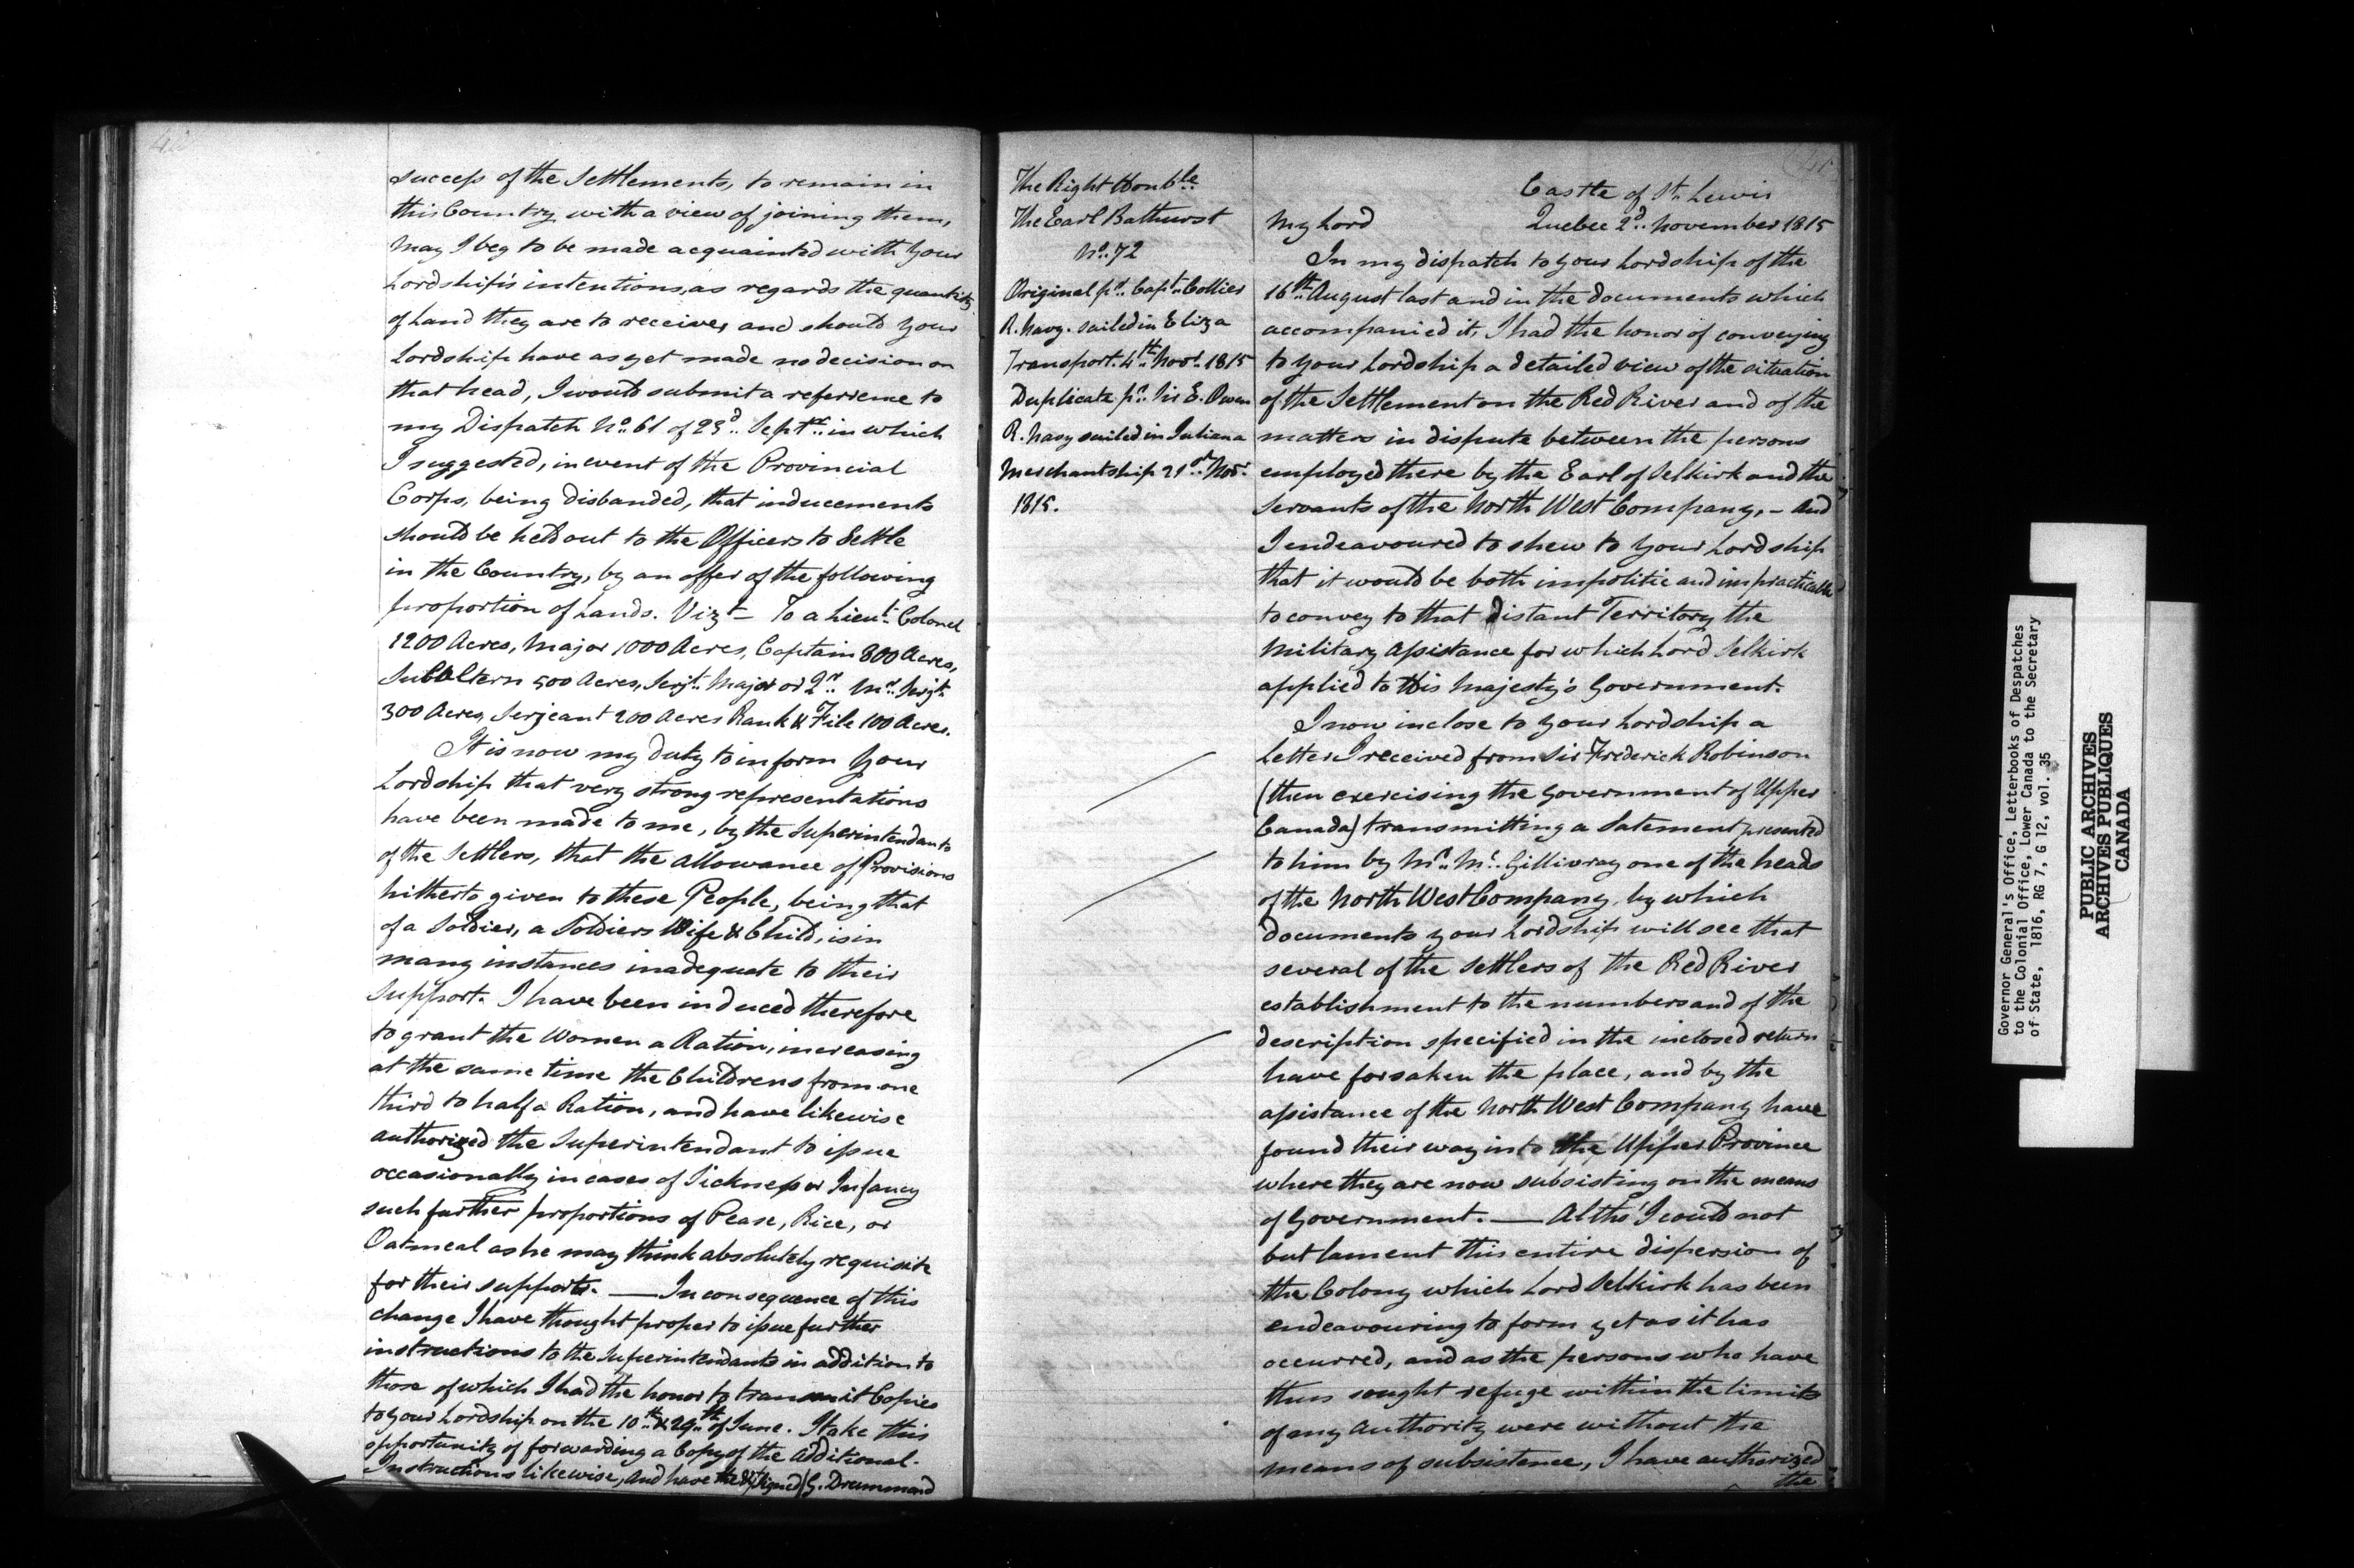 40
success of the Settlements, to remain in
this Country with a view of joining them,
May I beg to be made acquainted with Your
Lordship's intentions, as regards the quantity
of Land they are to receive, and should Your
Lordship have as yet made no decision on
that head, I would submit a reference to
my Dispatch No. 61 of 23d.. Septr.. in which
I suggested, in event of the Provincial
Corps, being disbanded, that inducements
should be held out to the Officers to Settle
in the Country, by an offer of the following
proportion of Lands. Vizt — To a Lieut. Colonel
1200 Acres, Major 1000 Acres, Captain 800 Acres,
Subaltern 500 Acres, Serjt. Major or Qr. Mr. Serjt.
300 Acres, Serjeant 200 Acres Rank & File 100 Acres.
It is now my duty to inform Your
Lordship that very strong representations
have been made to me, by the Superintendants
of the Settlers, that the allowance of Provisions
hitherto given to these People, being that
of a Soldier, a Soldiers Wife & Child, is in
many instances inadequate to their
Support. I have been induced therefore
to grant the Women a Ration, increasing
at the same time the Childrens from one
third to half a Ration, and have likewise
authorized the Superintendant to issue
occasionally in cases of Sickness or Infancy
such further proportions of Pease, Rice, or
Oatmeal as he may think absolutely requisite
for their support. — In consequence of this
change I have thought proper to issue further
instructions to the Superintendants in addition to
those of which I had the honor to transmit Copies
to Your Lordship on the 10th. & 20th. of June. I take this
opportunity of forwarding a Copy of the additional
Instructions likewise, And have the &c (Signed) G. Drummond
The Right Honble.
The Earl Bathurst
No. 72
Original pr. Capt. Collier
R. Navy. sailed in Eliza
Transport. 4th. Novr. 1815
Duplicate pr. Sir E. Owen
R. Navy sailed in Juliana
Merchantship 21st. Novr.
1815.
41
Castle of St. Lewis
My Lord Quebec 2d.. November 1815
In my dispatch to Your Lordship of the
16th. August last and in the documents which
accompanied it, I had the honor of conveying
to Your Lordship a detailed view of the situation
of the Settlement on the Red River and of the
matters in dispute between the persons
employed there by the Earl of Selkirk and the
Servants of the North West Company, — And
I endeavoured to shew to Your Lordship
that it would be both impolitic and impracticable
to convey to that distant Territory the
Military assistance for which Lord Selkirk
applied to His Majesty's Government.
I now inclose to Your Lordship a
Letter I received from Sir Frederick Robinson
(then exercising the Government of Upper
Canada) transmitting a Satement presented
to him by Mr. Mc. Gillivray one of the heads
of the North West Company, by which
documents Your Lordship will see that
several of the Settlers of the Red River
establishment to the numbers and of the
description specified in the inclosed return
have forsaken the place, and by the
assistance of the North West Company have
found their way into the Upper Province
where they are now subsisting on the means
of Government. — Altho' I could not
but lament this entire dispersion of
the Colony which Lord Selkirk has been
endeavouring to form yet as it has
occurred, and as the persons who have
thus sought refuge within the limits
of any Authority were without the
means of subsistence, I have authorized
the
Governor General's Office, Letterbooks of Despatches
to the Colonial Office, Lower Canada to the Secretary
of State, 1816, RG 7, G 12, vol. 35
PUBLIC ARCHIVES
ARCHIVES PUBLIQUES
CANADA